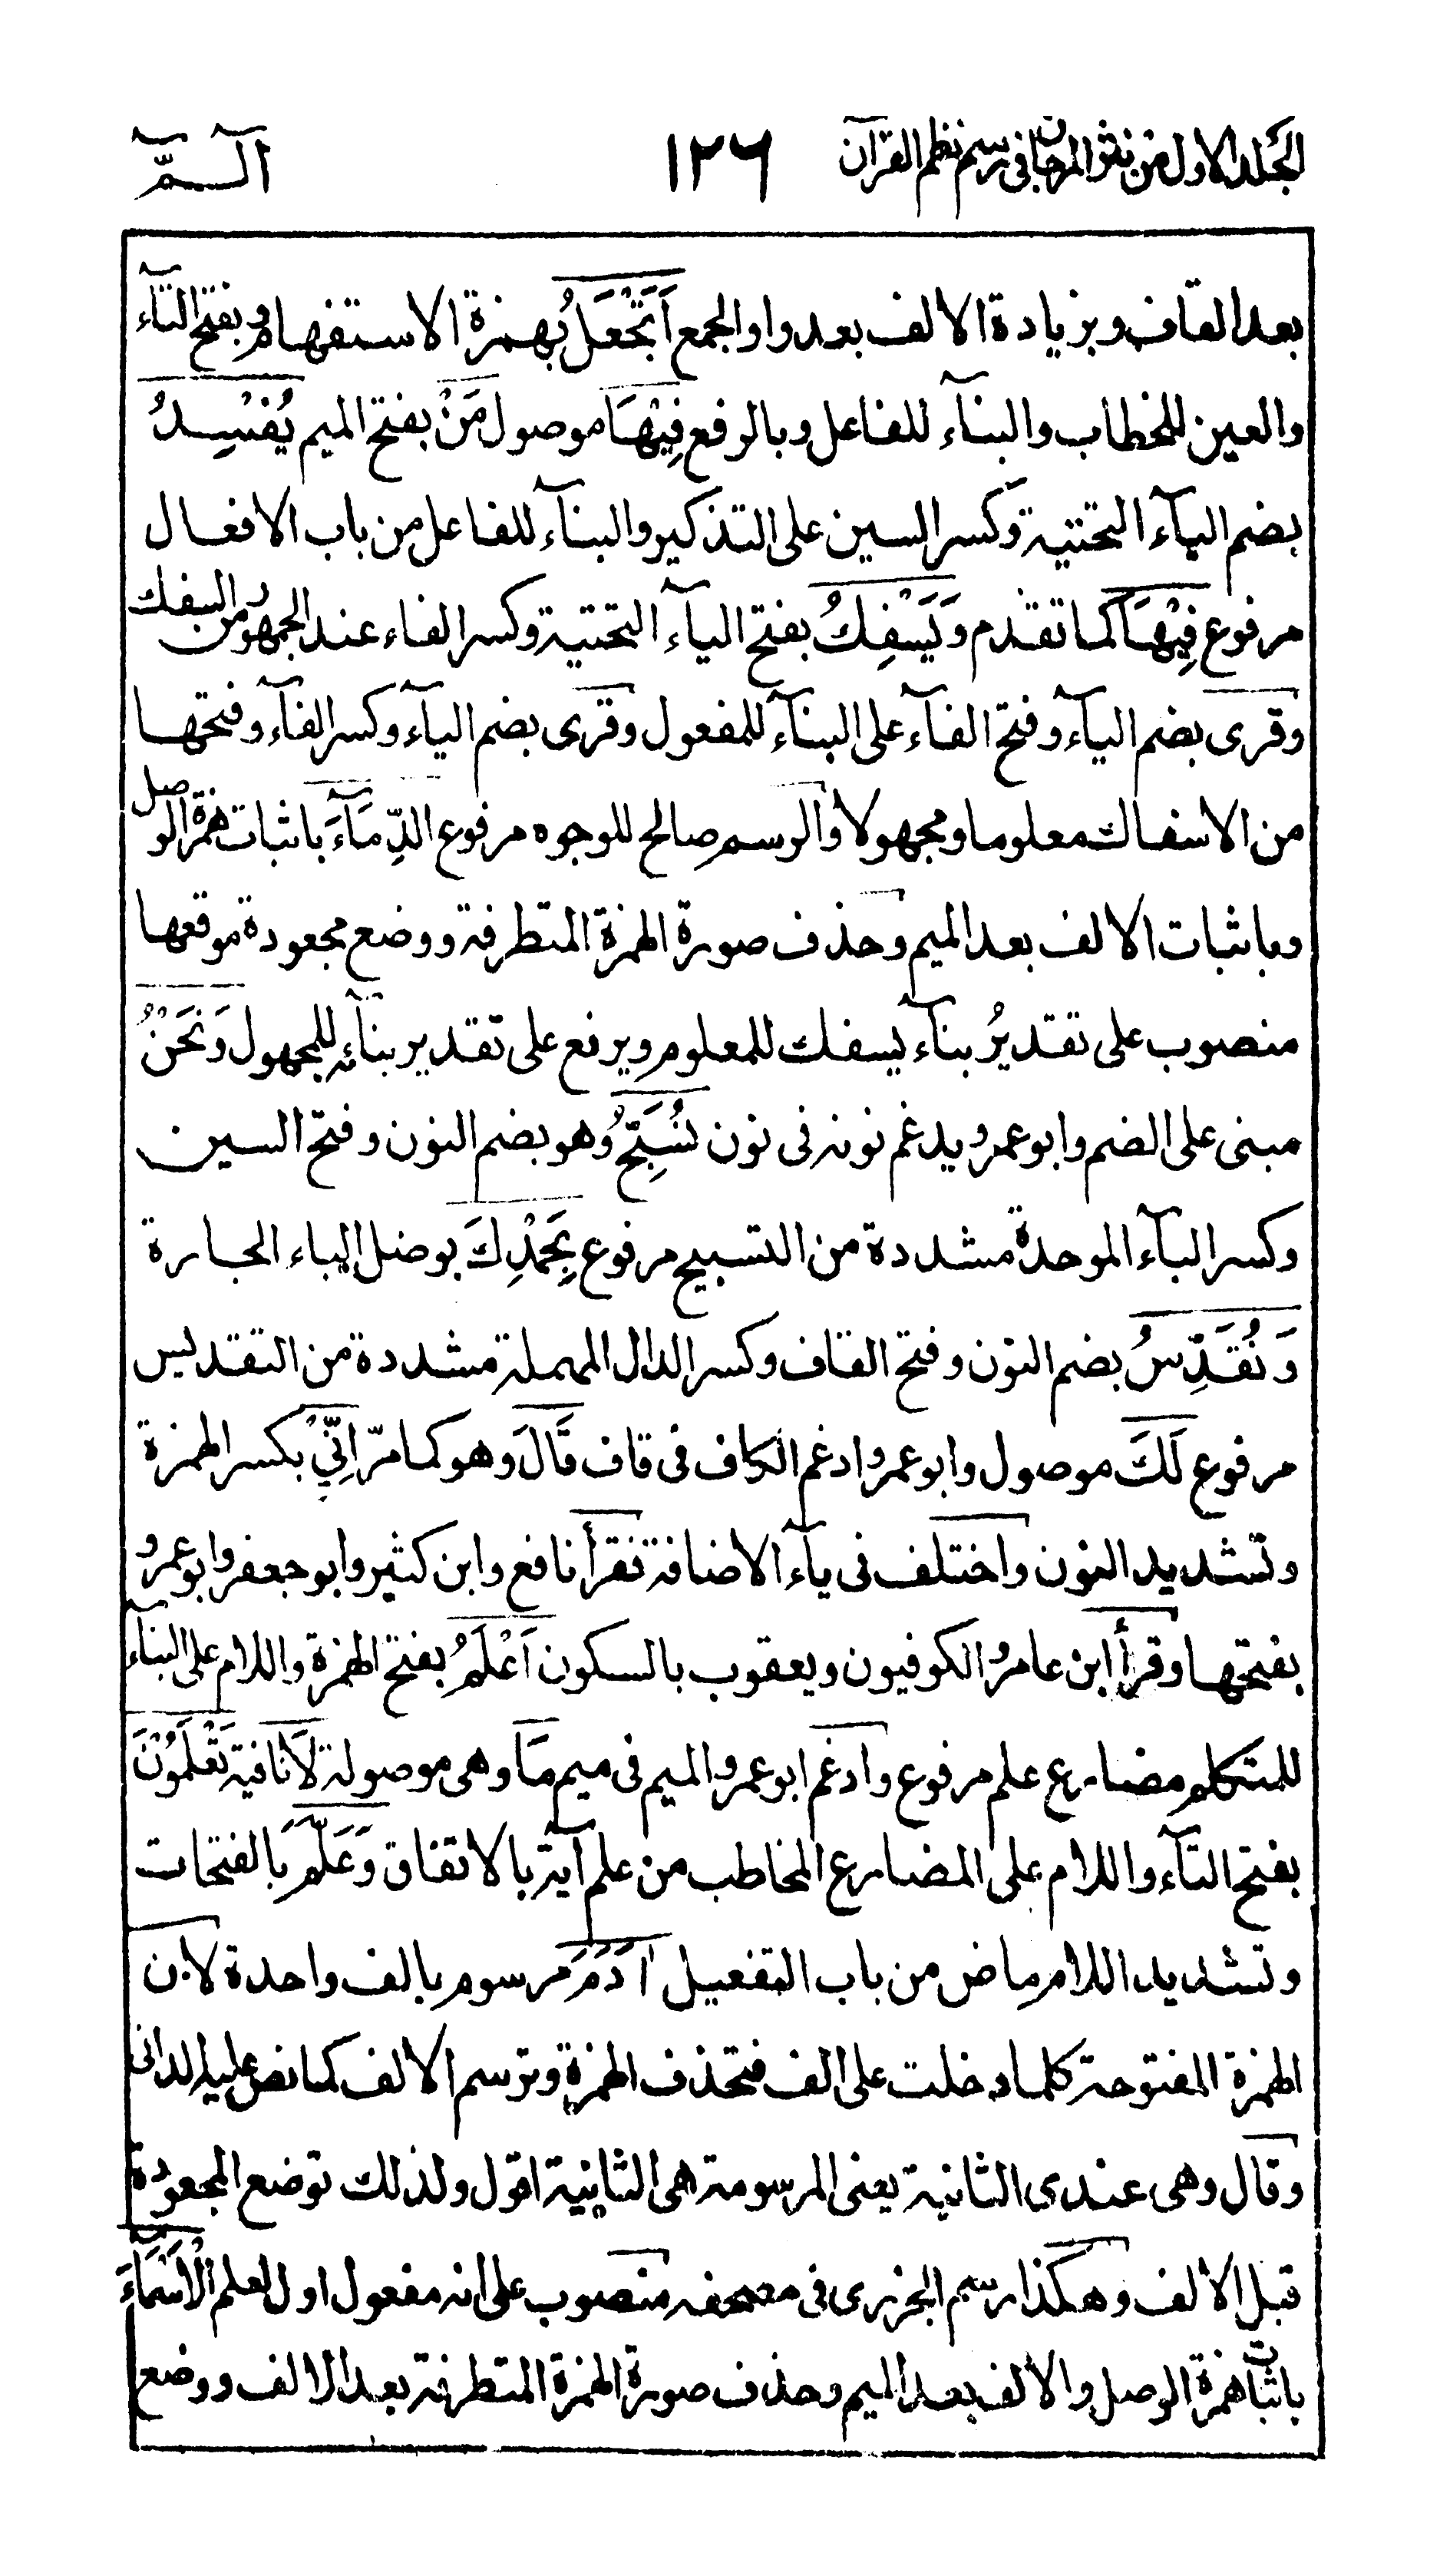 الجلد الاول من نثر المرجان فى رسم نظم القرآن ١٢٦ آلــمّٓ
بعد القاف وبزيادة الالف بعد واو الجمع اَتَجْعَلُ بهمزة الاستفهام وبفتح التآء
والعين للخطاب والبنآء للفاعل وبالرفع فِيْهَا موصول مَنْ بفتح الميم يُفْسِدُ
بضم اليآء التحتية وكسر السين على التذكير والبنآء للفاعل من باب الافعال
مرفوع فِيْهَا كما تقدم وَيَسْفِكُ بفتح اليآء التحتية وكسر الفاء عند الجمهور من السفك
وقرى بضم اليآء وفتح الفآء على البنآء للمفعول وقرى بضم اليآء وكسر الفآء وفتحها
من الاسفاك معلوما ومجهولا والرسم صالح للوجوه مرفوع الدِّمَآءَ باثبات همزة الوصل
وباثبات الالف بعد الميم وحذف صورة الهمزة المتطرفة ووضع مجعودة موقعها
منصوب على تقدير بنآء يسفك للمعلوم ويرفع على تقدير بنآئه للمجهول وَنَحْنُ
مبنى على الضم وابو عمرو يدغم نونه فى نون نُسَبِّحُ وهو بضم النون وفتح السين
وكسر البآء الموحدة مشددة من التسبيح مرفوع بِحَمْدِكَ بوصل الباء الجارة
وَنُقَدِّسُ بضم النون وفتح القاف وكسر الدال المهملة مشددة من التقديس
مرفوع لَكَ موصول وابو عمرو ادغم الكاف فى قاف قَالَ وهو كما مرّ اِنِّيْ بكسر الهمزة
وتشديد النون واختلف فى يآء الاضافة فقرأ نافع وابن كثير وابو جعفر وابو عمرو
بفتحها وقرأ ابن عامر والكوفيون ويعقوب بالسكون اَعْلَمُ بفتح الهمزة واللام على البنآء
للمتكلم مضارع علم مرفوع وادغم ابو عمرو الميم فى ميم مَا وهى موصولة لَا نافية تَعْلَمُوْنَ
بفتح التآء واللام على المضارع المخاطب من علم آية بالاتفاق وَعَلَّمَ بالفتحات
وتشديد اللام ماض من باب التفعيل اٰدَمَ مرسوم بالف واحدة لان
الهمزة المفتوحة كلما دخلت على الف فتحذف الهمزة وترسم الالف كما نص عليه الدانى
وقال وهى عندى الثانية يعنى المرسومة هى الثانية اقول ولذلك توضع المجعودة
قبل الالف وهكذا رسم الجزرى فى مصحفه منصوب على انه مفعول اول لعلم الْاَسْمَآءَ
باثبات همزة الوصل والالف بعد الميم وحذف صورة الهمزة المتطرفة بعد الالف ووضع